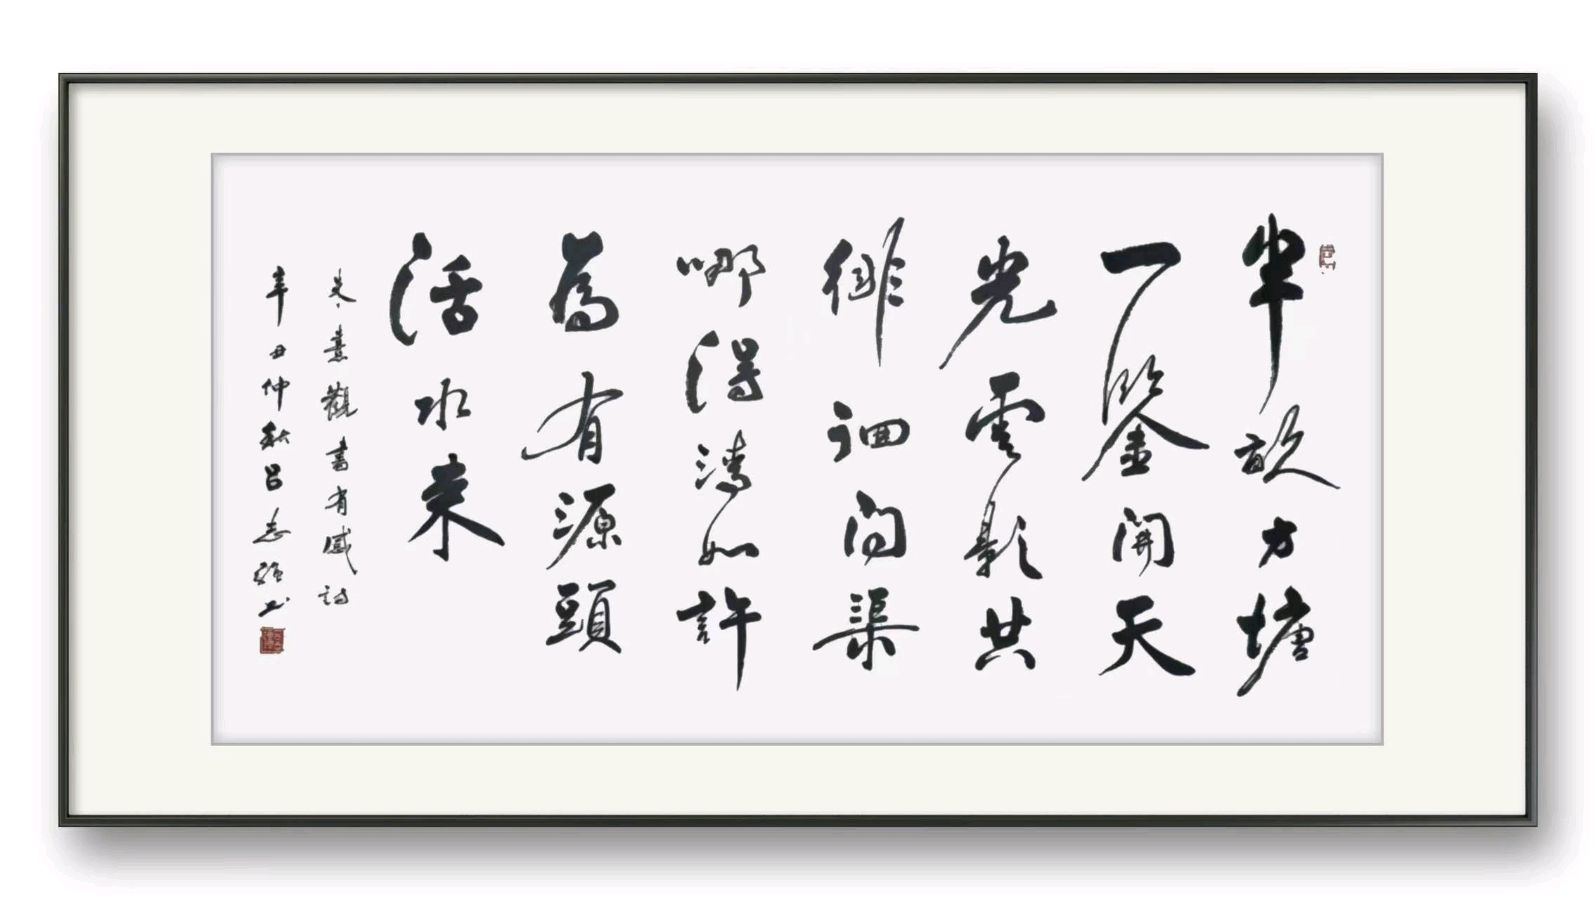 半畝方塘
一鉴開天
光雲影共
徘徊问渠
哪得清如許
為有源頭
活水来
朱熹觀書有感詩
辛丑仲秋吕志强书